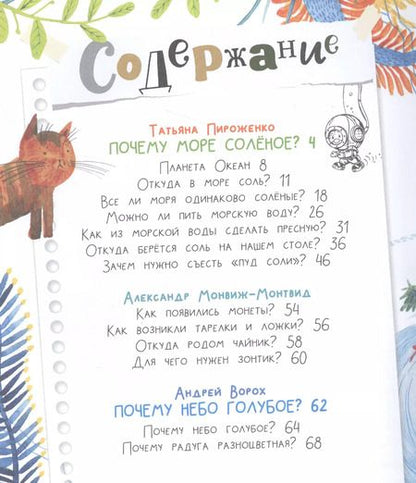 Содержание
Татьяна Пироженко
Почему море солёное? 4
Планета Океан 8
Откуда в море соль? 11
Все ли моря одинаково солёные? 18
Можно ли пить морскую воду? 26
Как из морской воды сделать пресную? 31
Откуда берётся соль на нашем столе? 36
Зачем нужно съесть «пуд соли»? 46
Александр Монвиж-Монтвид
Как появились монеты? 54
Как возникли тарелки и ложки? 56
Откуда родом чайник? 58
Для чего нужен зонтик? 60
Андрей Ворох
Почему небо голубое? 62
Почему небо голубое? 64
Почему радуга разноцветная? 68